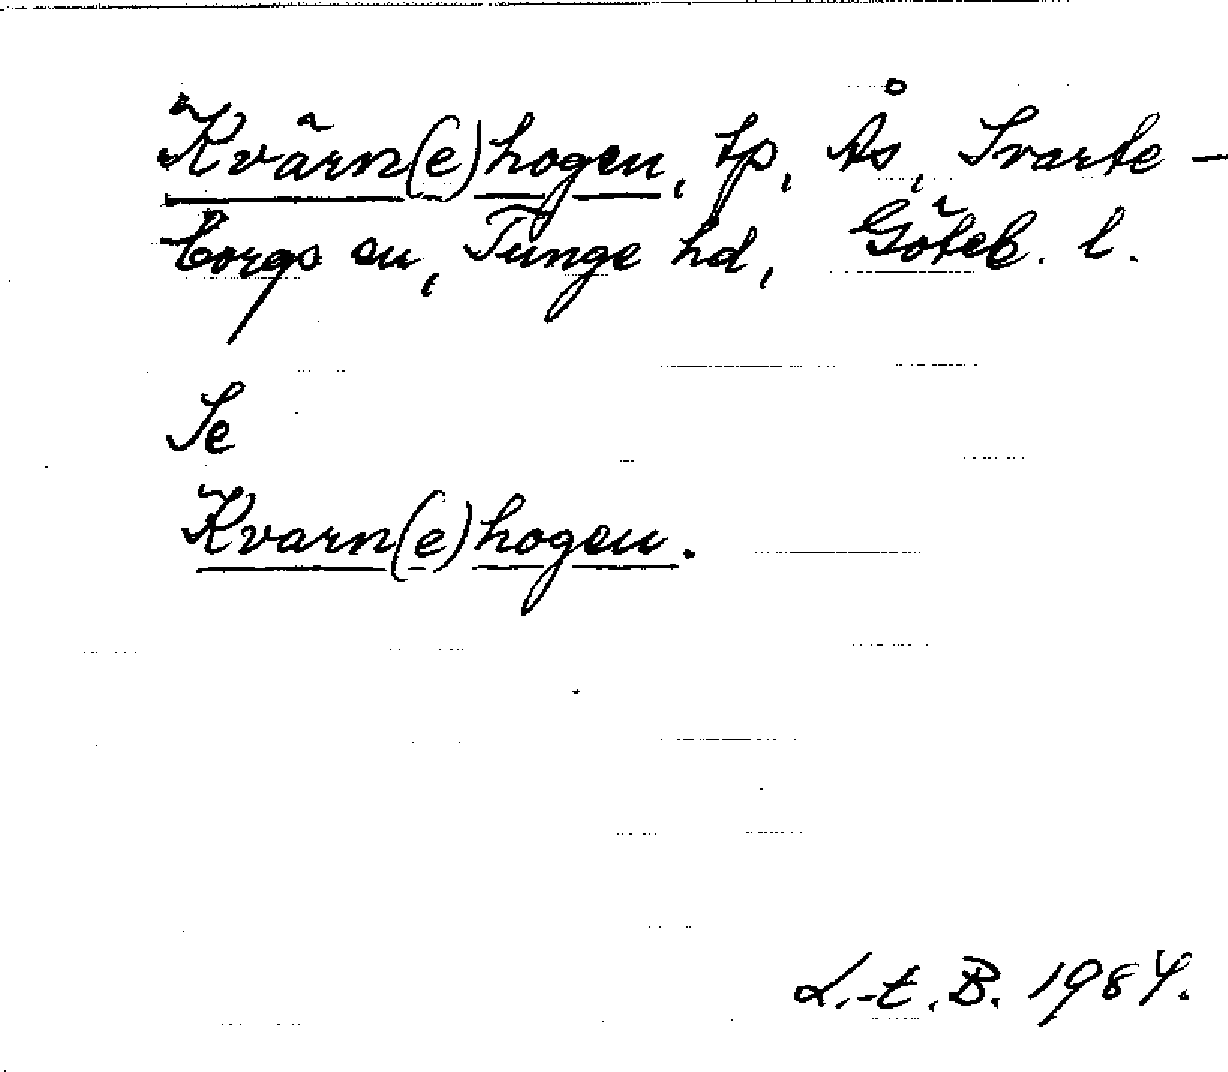 Kvärn(e)hogen, tp, Ås, Svarte-
borgs sn, Tunge hd, Göteb. l.
Se
Kvarn(e)hogen.
L.-t. B. 1984.